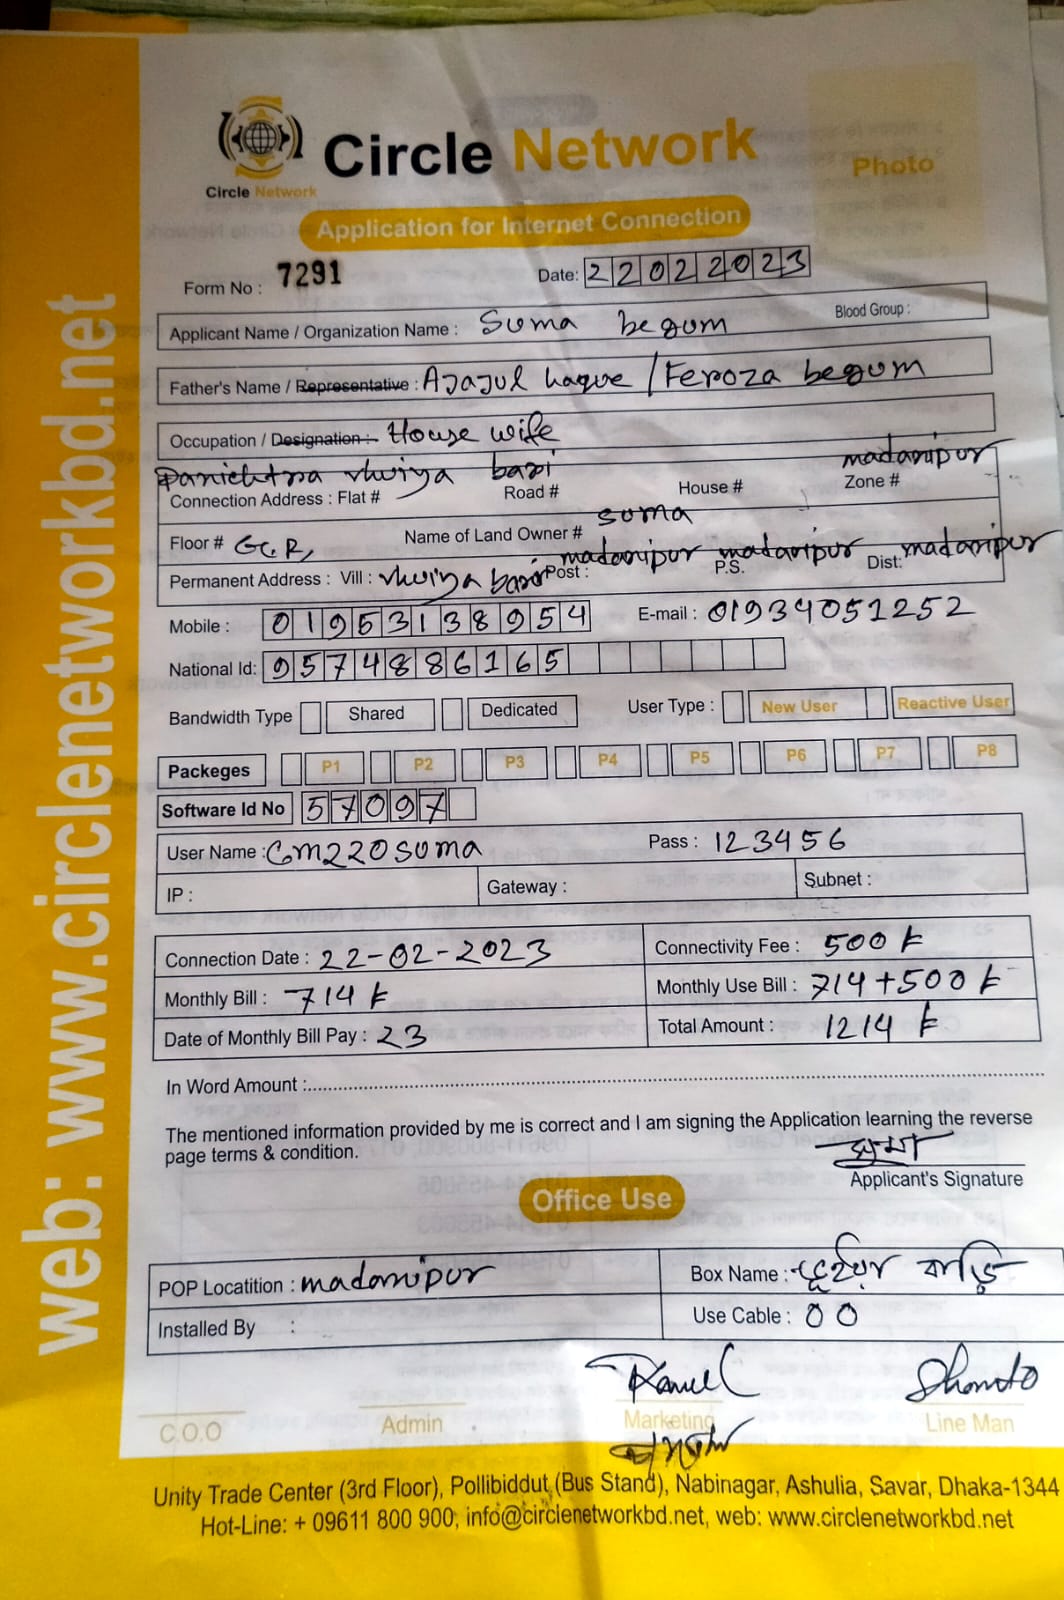 web: www.circlenetworkbd.net
Circle Network
Circle Network
Photo
Application for Internet Connection
Form No : 7291 Date: 22022023
Applicant Name / Organization Name : Suma begum Blood Group :
Father's Name / Representative : Ajajul haque / Feroza begum
Occupation / Designation : House wife
bari madanipur
Connection Address : Flat # Road # House # Zone #
Floor # Name of Land Owner # suma
Permanent Address : Vill : bari Post : madanipur P.S. madanipur Dist: madanipur
Mobile : 01953138954 E-mail : 01934051252
National Id: 9574886165
Bandwidth Type Shared Dedicated User Type : New User Reactive User
Packeges P1 P2 P3 P4 P5 P6 P7 P8
Software Id No 57097
User Name : Cm220suma Pass : 123456
IP : Gateway : Subnet :
Connection Date : 22-02-2023 Connectivity Fee : 500 ৳
Monthly Bill : 714 ৳ Monthly Use Bill : 714+500 ৳
Date of Monthly Bill Pay : 23 Total Amount : 1214 ৳
In Word Amount :
The mentioned information provided by me is correct and I am signing the Application learning the reverse
page terms & condition.
সুমা
Applicant's Signature
Office Use
POP Locatition : madanipur Box Name : ভূইয়া বাড়ি
Installed By : Use Cable : 00
Shanto
C.O.O Admin Marketing Line Man
Unity Trade Center (3rd Floor), Pollibiddut (Bus Stand), Nabinagar, Ashulia, Savar, Dhaka-1344
Hot-Line: + 09611 800 900, info@circlenetworkbd.net, web: www.circlenetworkbd.net